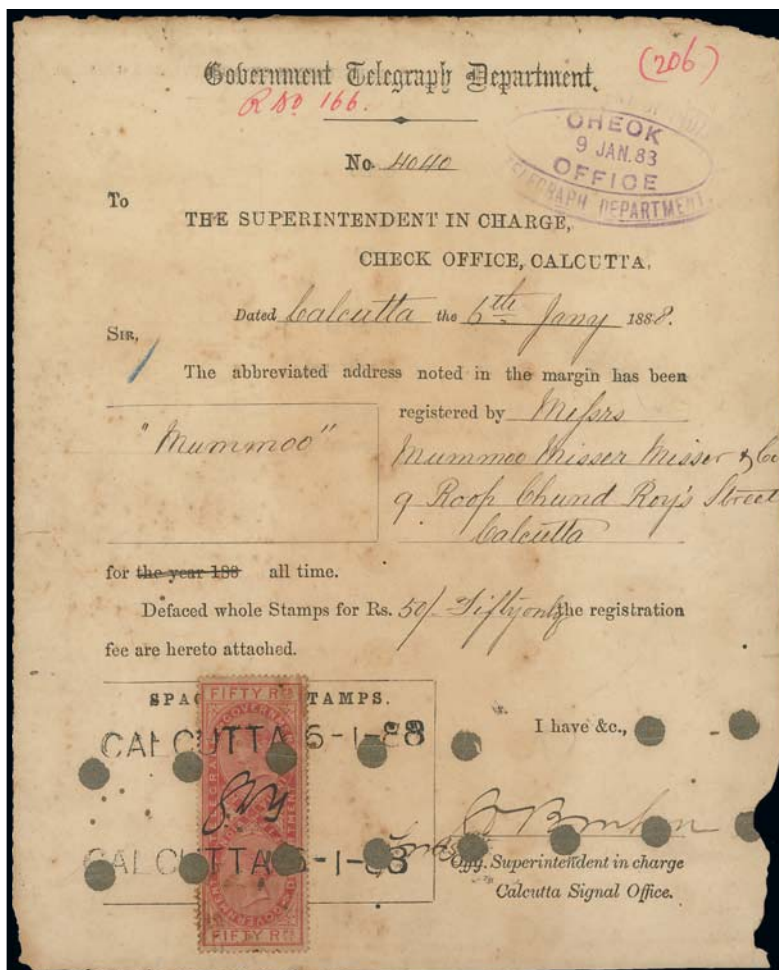 Government Telegraph Department.
(206)
R No 166.
CHECK
9 JAN. 88
OFFICE
TELEGRAPH DEPARTMENT.
No. 4040
To
THE SUPERINTENDENT IN CHARGE,
CHECK OFFICE, CALCUTTA.
Dated Calcutta the 6th Jany 1888.
SIR,
The abbreviated address noted in the margin has been
registered by Messrs
"Mummoo"
Mummoo Misser Misser & Co
9 Roop Chund Roy's Street
Calcutta
for the year 188 all time.
Defaced whole Stamps for Rs. 50/- Fifty only the registration
fee are hereto attached.
SPAC TAMPS.
FIFTY RS
CALCUTTA 6-1-88
CALCUTTA 6-1-88
FIFTY RS
I have &c.,
Offg. Superintendent in charge
Calcutta Signal Office.